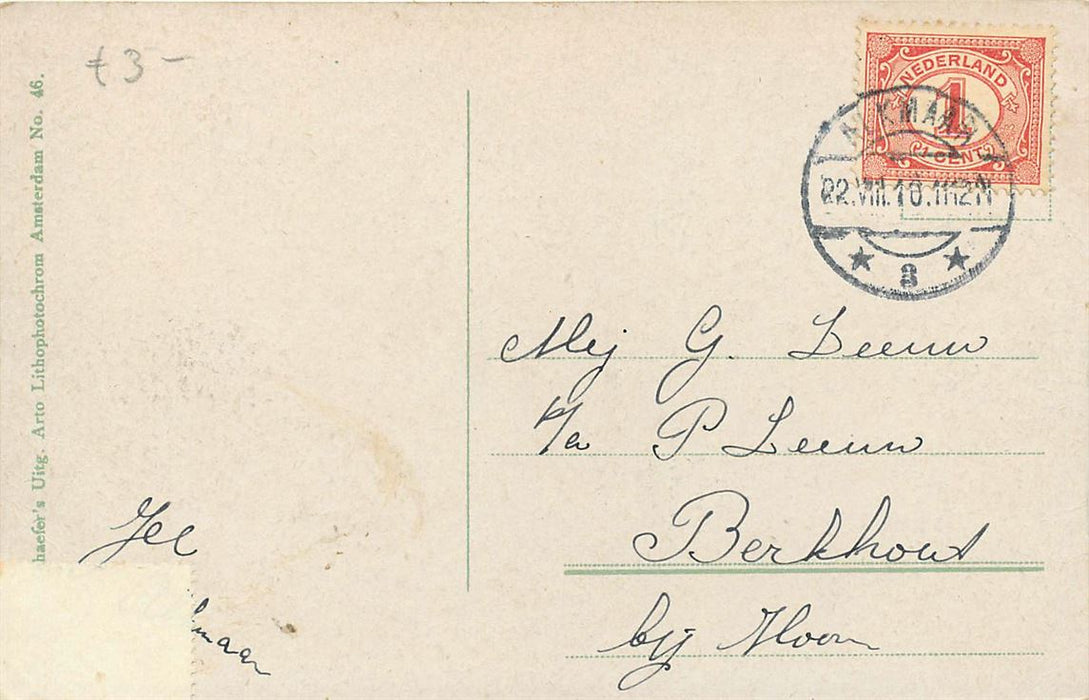 t 3 –
haefer's Uitg. Arto Lithophotochrom Amsterdam No. 46.
NEDERLAND
1
1 CENT
ALKMAAR
22.VIII.10.11-12N
3
Mej G. Leeuw
p/a P Leeuw
Berkhout
bij Hoorn
Jee
maar